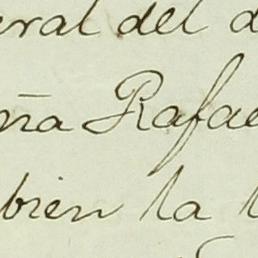 eral del d
ña Rafae
bien la